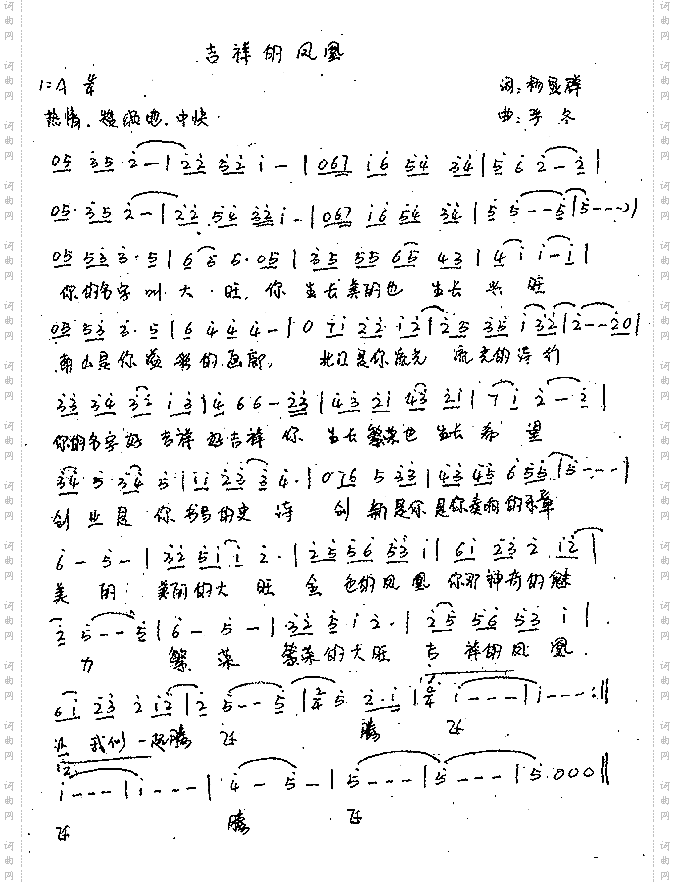 吉祥的凤凰
1=A 4/4
词:杨显群
热情、中快
曲:李冬
05 35 2 — | 22 52 1 — | 067 16 54 34 | 5 6 2 — 2 |
05· 35 2 — | 22· 54 32 1 — | 067 16 54 34 | 5 5 — — 5 | (5 — — —) |
05 53 3· 5 | 6 5 6· 05 | 35 55 65 43 | 4 1 1 — 1 |
你的名字叫大旺,你生长美丽也生长兴旺
05 53 3· 5 | 6 4 4 4 — | 0 71 22 12 | 23 35 1 32 | 2 — — 20 |
南山是你的画廊, 北江是你流光流光的诗行
33 34 32 13 | 4 6 6 — 23 | 43 21 43 21 | 7 1 2 — 2 |
你的名字好吉祥好吉祥 你生长繁荣也生长希望
34 5 34 5 | 11 23 3 4· | 0 16 5 33 | 43 45 6 55 | 5 — — — |
创业是你的史诗 创新是你是你奏响的乐章
6 — 5 — | 32 51 1 2· | 25 56 53 1 | 61 23 2 12 |
美丽 美丽的大旺 金色的凤凰 你那神奇的魅
2 5 — — 5 | 6 — 5 — | 32 5 1 2· | 25 56 53 1 |
力 繁荣 繁荣的大旺 吉祥的凤凰
61 23 2 12 | 2 5 — — 5 | 2/4 5 2·1 | 4/4 1 — — — | 1 — — — :||
让我们一起腾飞 腾飞
1 — — — | 1 — — — | 4 — 5 — | 5 — — — | 5 — — — | 5 000 ||
飞 腾 飞
词曲网